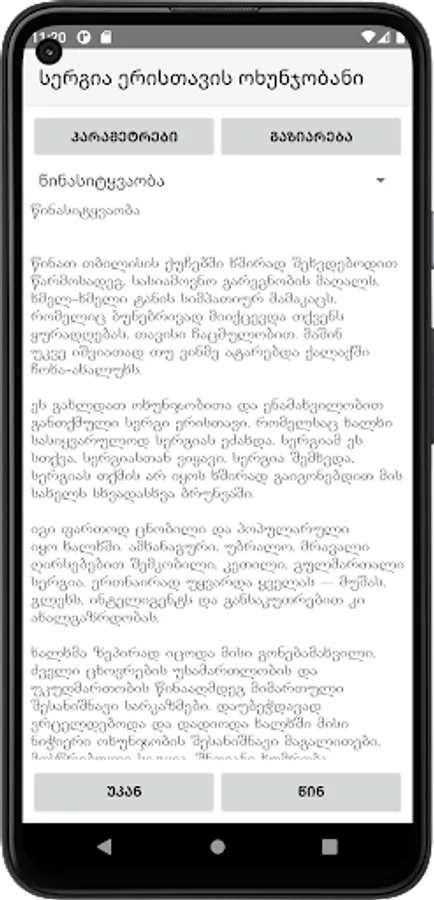 11:20
სერგია ერისთავის ოხუნჯობანი
პარამეტრები
გაზიარება
წინასიტყვაობა
წინასიტყვაობა
წინათ თბილისის ქუჩებში ხშირად შეხვდებოდით
წარმოსადეგ, სასიამოვნო გარეგნობის მაღალს,
ხმელ-ხმელი ტანის სიმპათიურ მამაკაცს,
რომელიც ბუნებრივად მიიქცევდა თქვენს
ყურადღებას, თავისი ჩაცმულობით. მაშინ
უკვე იშვიათად თუ ვინმე ატარებდა ქალაქში
ჩოხა-ახალუხს.
ეს გახლდათ ოხუნჯობითა და ენამახვილობით
განთქმული სერგი ერისთავი, რომელსაც ხალხი
სასიყვარულოდ სერგიას ეძახდა. სერგიამ ეს
სთქვა, სერგიასთან ვიყავი, სერგია შემხვდა,
სერგიას თქმის არ იყოს ხშირად გაიგონებდით მის
სახელს სხვადასხვა ბრუნვაში.
იგი ფართოდ ცნობილი და პოპულარული
იყო ხალხში. ამხანაგური, უბრალო, მრავალი
ღირსებებით შემკობილი, კეთილი, გულმართალი
სერგია, ერთნაირად უყვარდა ყველას — მუშას,
გლეხს, ინტელიგენტს და განსაკუთრებით კი
ახალგაზრდობას.
ხალხმა ზეპირად იცოდა მისი გონებამახვილი,
ძველი ცხოვრების უსამართლობის და
უკუღმართობის წინააღმდეგ მიმართული
შესანიშნავი სარკაზმები. დაუბეჭდავად
ვრცელდებოდა და დადიოდა ხალხში მისი
ნიჭიერი ოხუნჯობის შესანიშნავი მაგალითები.
უკან
წინ